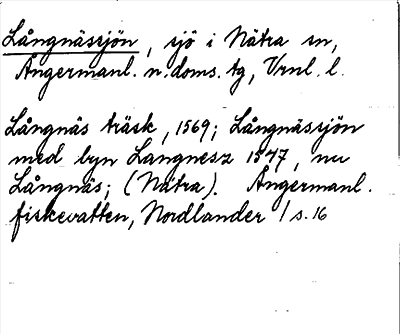 Långnässjön, sjö i Nätra sn,
Ångermanl. n. doms. tg, Vrnl. l.
Långnäs träsk, 1569; Långnässjön
med byn Langnesz 1547, nu
Långnäs; (Nätra). Ångermanl.
fiskevatten, Nordlander / s. 16